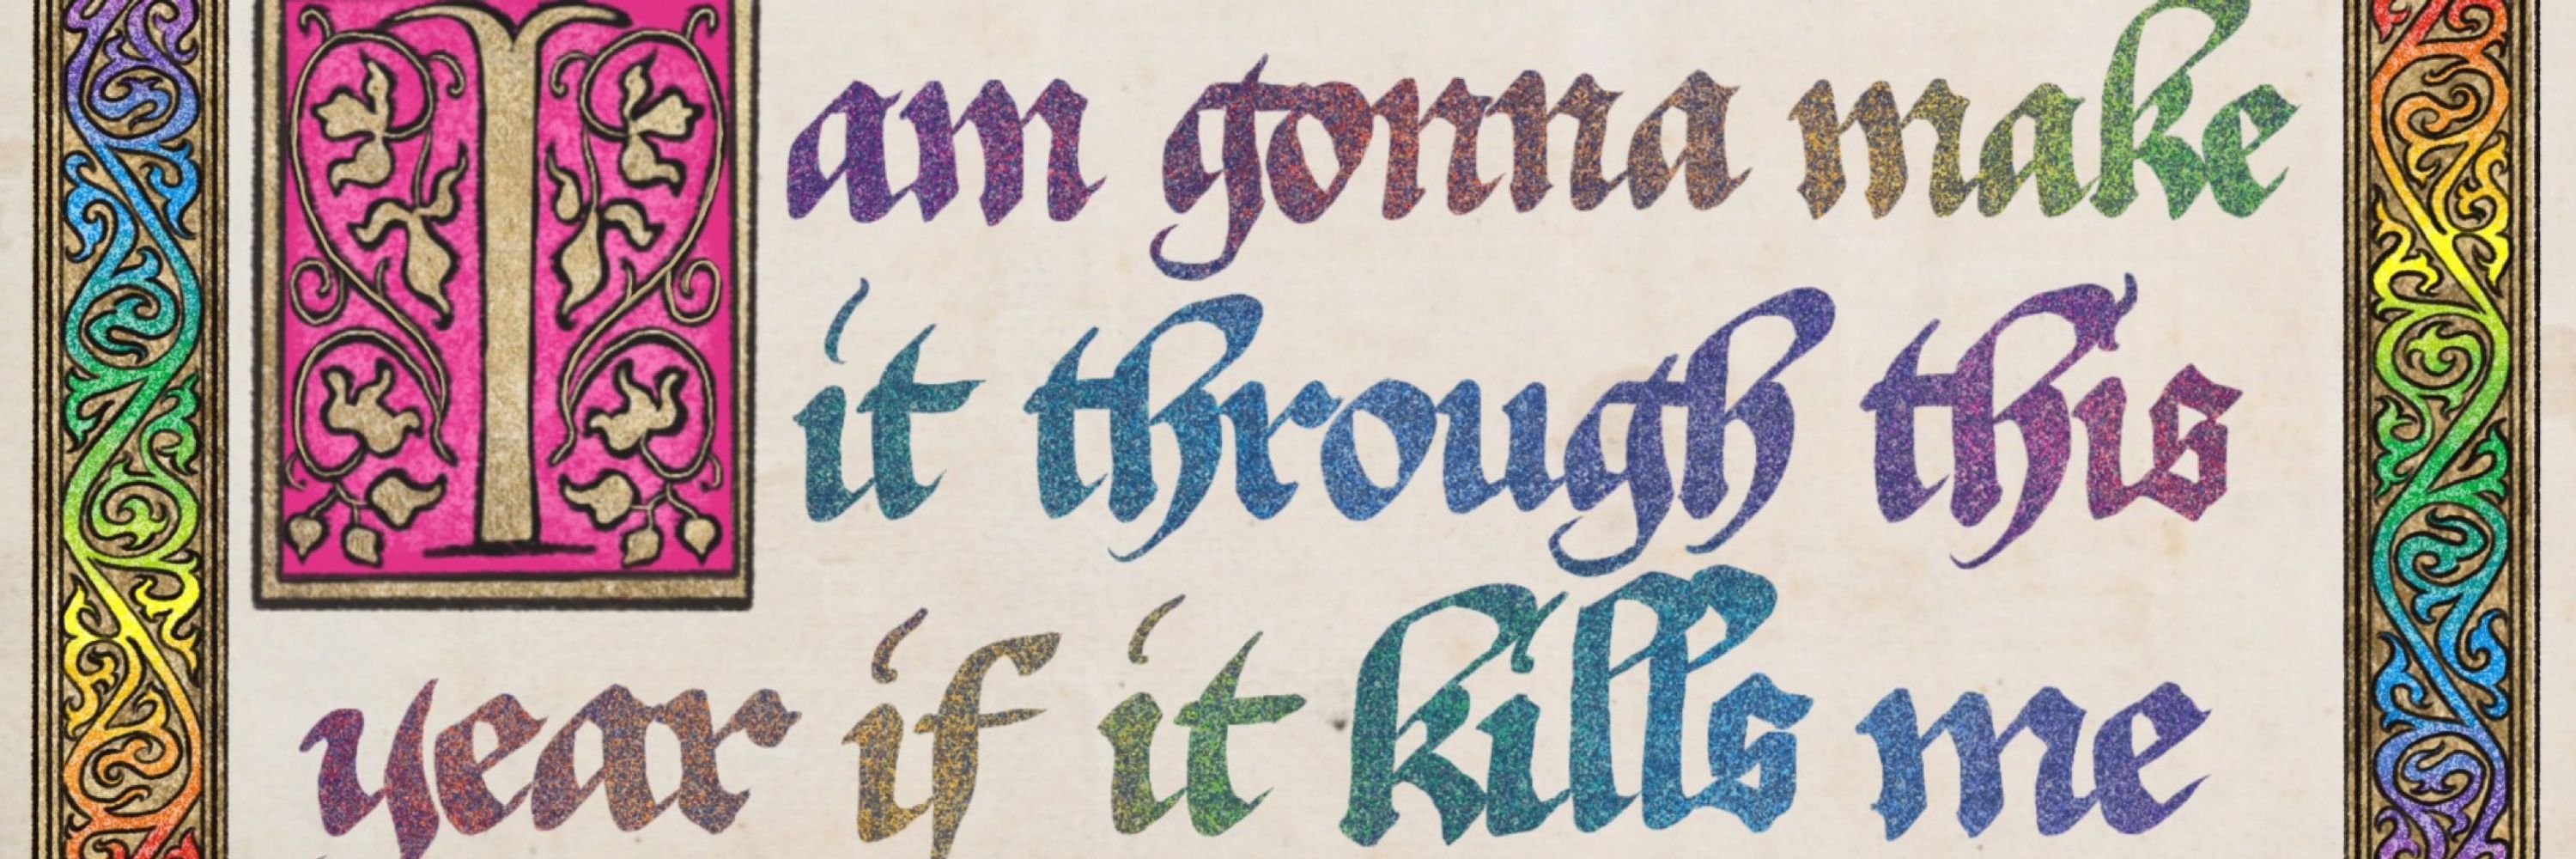 I am gonna make
it through this
year if it kills me